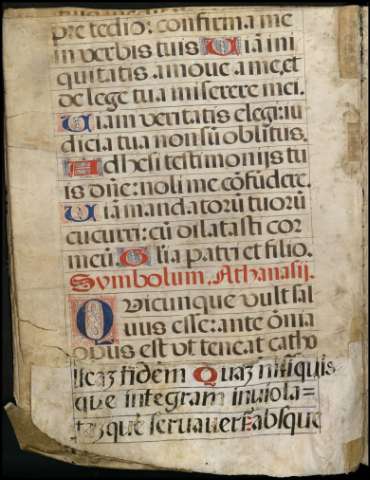 pre tedio: confirma me
in verbis tuis Uiā ini
quitatis amoue a me, et
de lege tua miserere mei.
Uiam veritatis elegi: iu
dicia tua non sū oblitus.
Adhesi testimonijs tu
is dñe: noli me cōfūdere.
Uiā mandatorū tuorū
cucurri: cū dilatasti cor
meū. Glia patri et filio.
Symbolum. Athanasij.
Quicunque vult sal
uus esse: ante oīnia
opus est vt teneat catho
licaȝ fidem Quaȝ nisi quis
que integram inuiola=
taȝ que seruauerit: absque